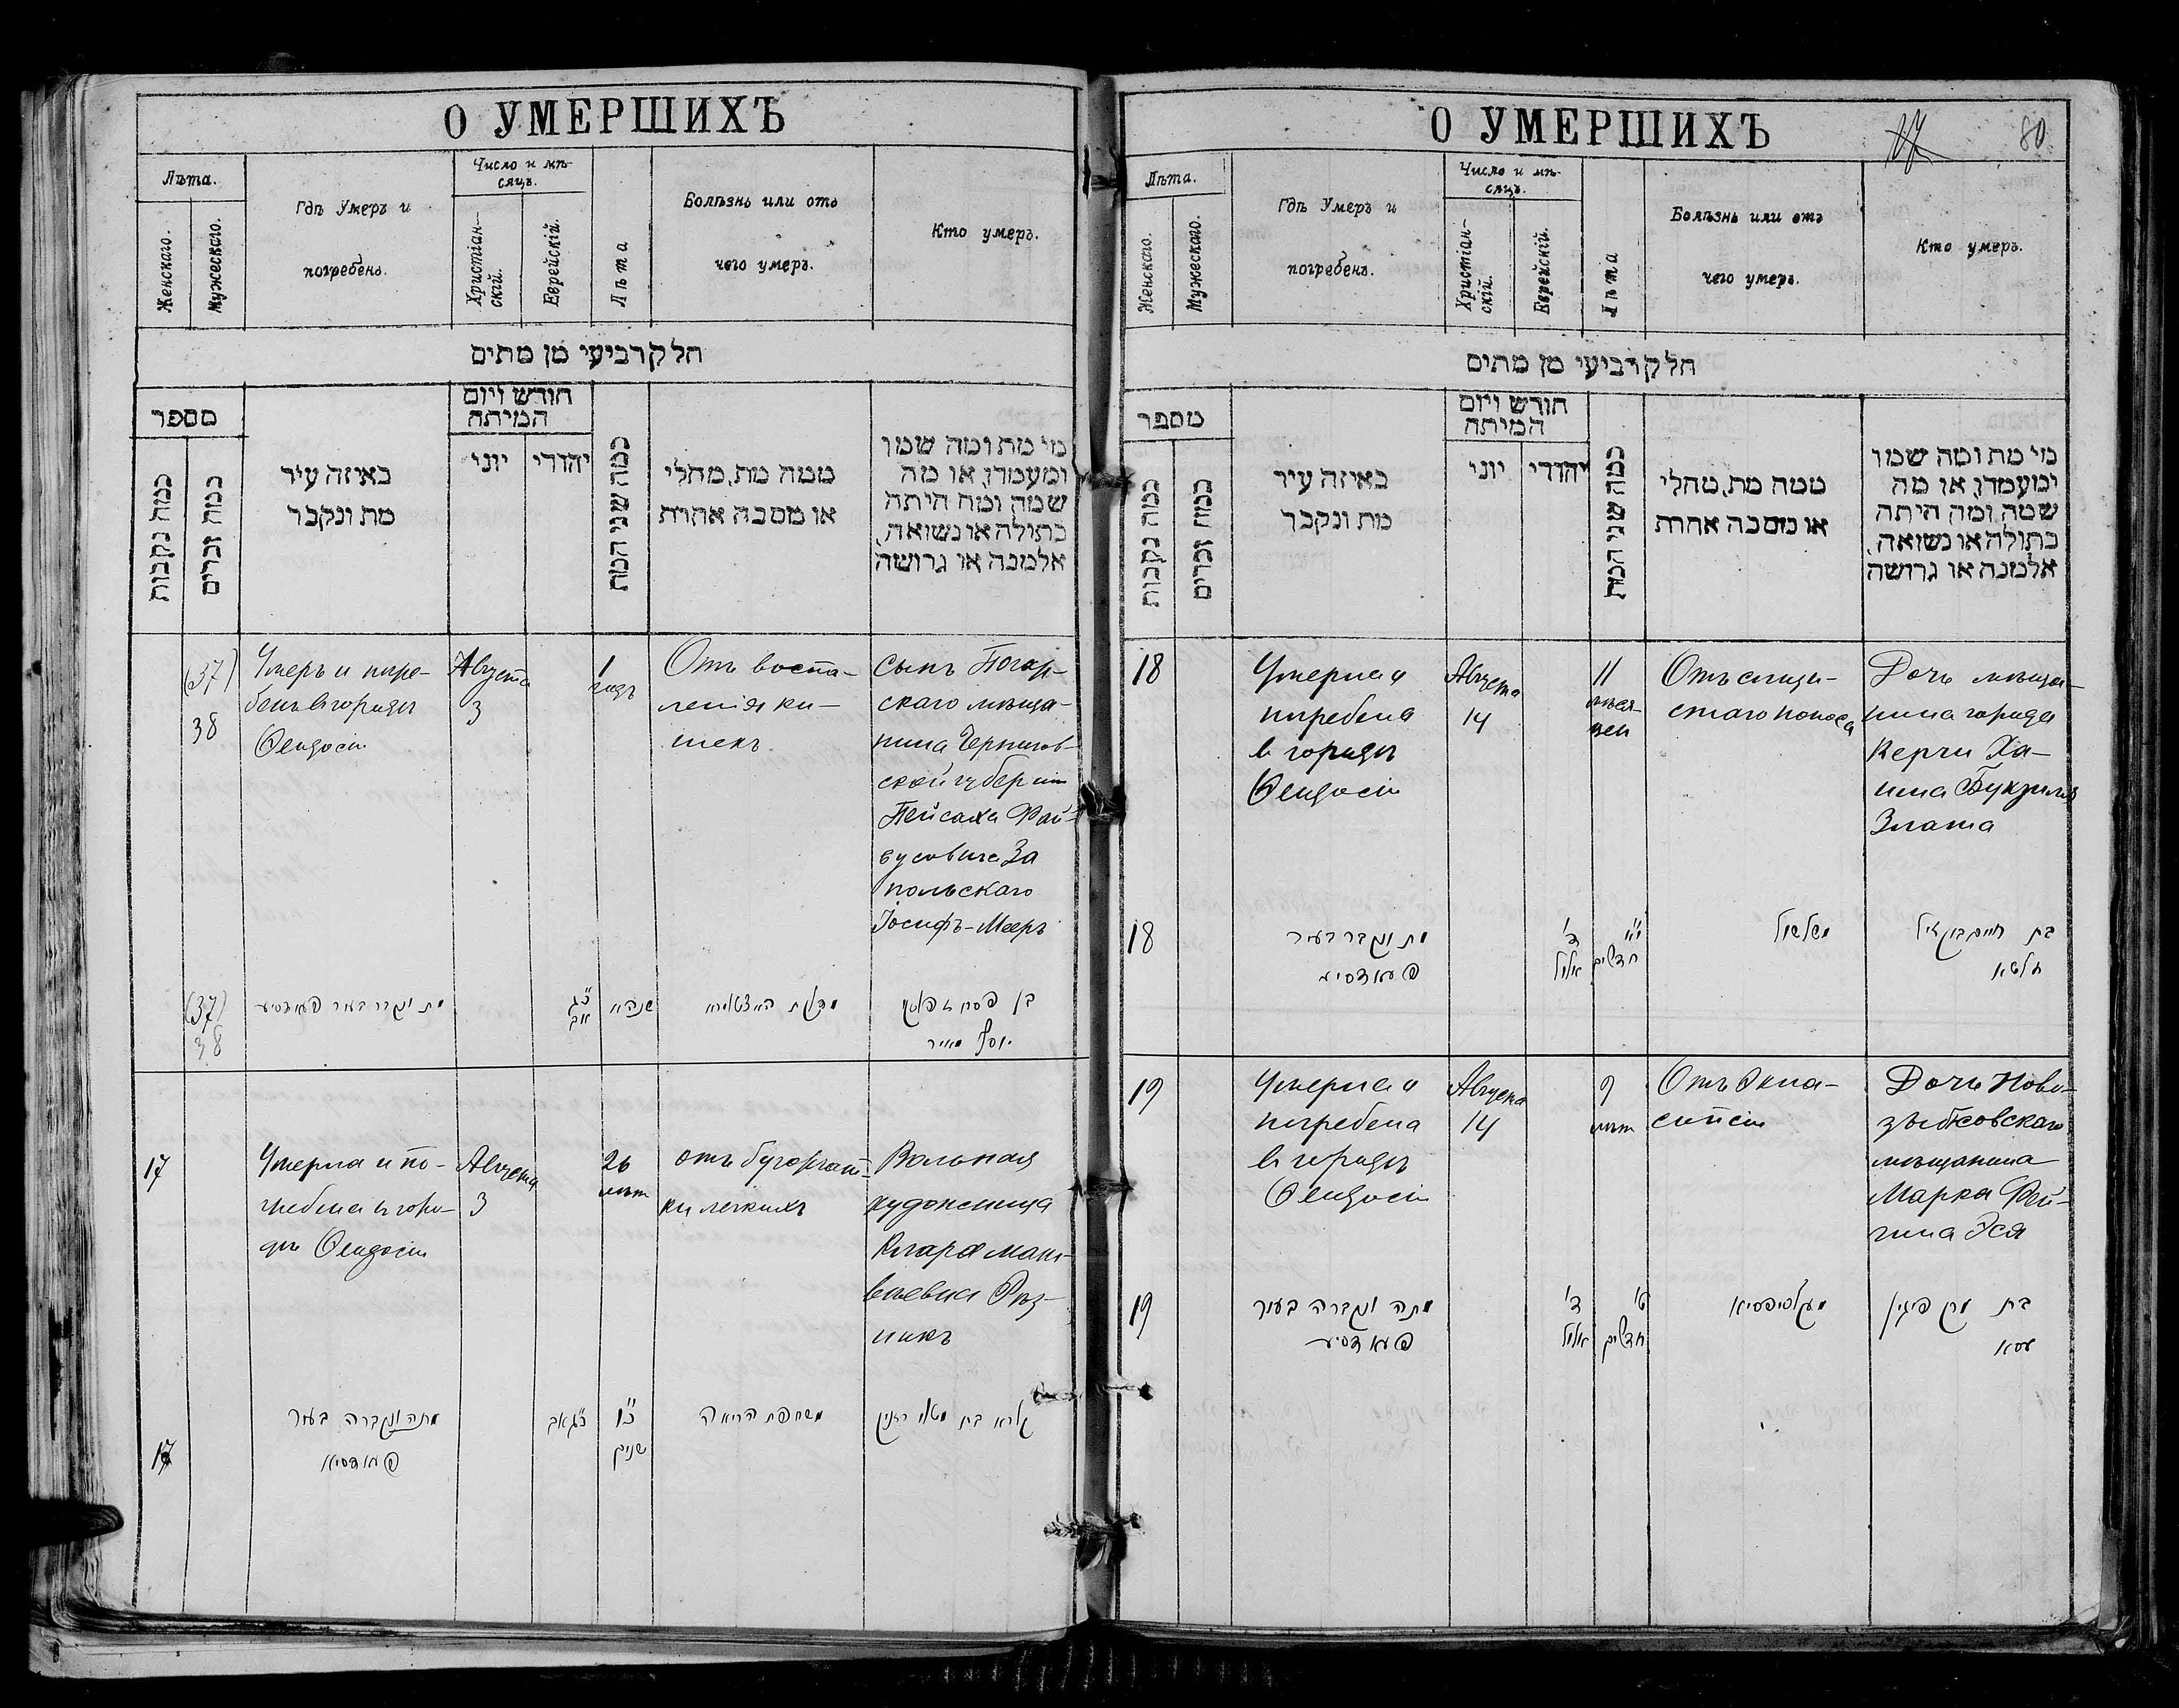 О УМЕРШИХЪ
Лѣта.
Женскаго.
Мужескаго.
Гдѣ Умеръ и
погребенъ.
Число и мѣ-
сяцъ.
Христіан-
скій.
Еврейскій.
Лѣта
Болѣзнь или отъ
чего умеръ.
Кто умеръ.
חלק רביעי מן מתים
מספר
כמה נקבות
כמה זכרים
באיזה עיר
מת ונקבר
חודש ויום
המיתה
יוני
יהודי
כמה שני המת
ממה מת, מחלי
או מסבה אחרת
מי מת ומה שמו
ומעמדו, או מה
שמה ומה היתה
בתולה או נשואה,
אלמנה או גרושה
(37)
38
Умеръ и погре-
бенъ въ городѣ
Ѳеодосіи
Августа
3
1
годъ
Отъ воспа-
ленія ки-
шекъ
Сынъ Погар-
скаго мѣща-
нина Чернигов-
ской губерніи
Пейсаха Фай-
вусовича За
польскаго
Іосифъ-Мееръ
(37)
38
מת ונקבר בעיר פעאדסיע
כ"ג
אב
שנה א
מדלקת
בן פסח זאפאלסקי
יוסף מאיר
17
Умерла и по-
гребена в горо-
дѣ Ѳеодосіи
Августа
3
26
лѣтъ
отъ бугорчат-
ки легкихъ
Вольная
художница
Клара Мат-
вѣевна Рѣз-
никъ
17
מתה ונקברה בעיר
פעאדסיא
כ"ג אב
כ"ו
שנים
משחפת הריאה
קלרא בת מטאי רזניק
О УМЕРШИХЪ
80
Лѣта.
Женскаго.
Мужескаго.
Гдѣ Умеръ и
погребенъ.
Число и мѣ-
сяцъ.
Христіан-
скій.
Еврейскій.
Лѣта
Болѣзнь или отъ
чего умеръ.
Кто умеръ.
חלק רביעי מן מתים
מספר
כמה נקבות
כמה זכרים
באיזה עיר
מת ונקבר
חודש ויום
המיתה
יוני
יהודי
כמה שני המת
ממה מת, מחלי
או מסבה אחרת
מי מת ומה שמו
ומעמדו, או מה
שמה ומה היתה
בתולה או נשואה,
אלמנה או גרושה
18
Умерла и
погребена
въ городѣ
Ѳеодосіи
Августа
14
11
мѣся-
цев
Отъ слизи-
стаго поноса
Дочь мѣща-
нина города
Керчи Ха-
има
Злата
18
מת ונקבר בעיר
פעאדסיא
ד'
אלול
י"א
חדשים
משלשול
בת חיים
זלטא
19
Умерла и
погребена
въ городѣ
Ѳеодосіи
Августа
14
9
лѣтъ
Отъ Экла-
мпсіи
Дочь Ново-
зыбковскаго
мѣщанина
Марка Фей-
гина Эся
19
מתה ונקברה בעיר
פעאדסיע
ד'
אלול
ט'
חדשים
בת מרק פייגין
עסא